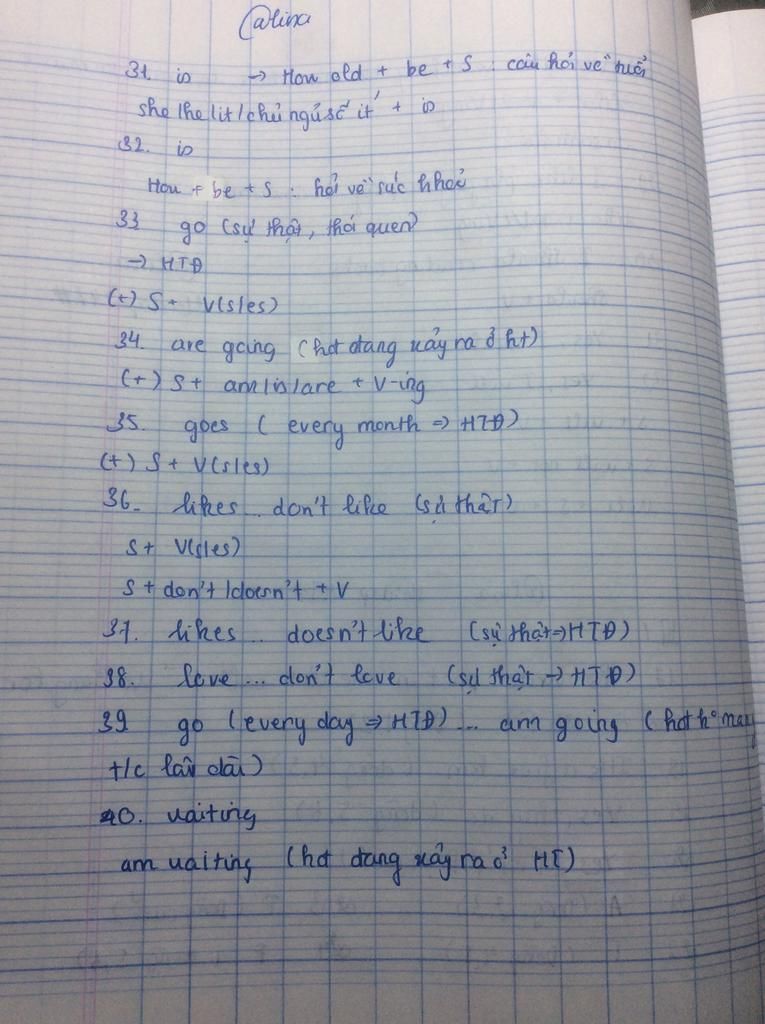 @alina
31. is → How old + be + S : câu hỏi về tuổi
she/he/it/chủ ngữ số ít + is
32. is
How + be + S : hỏi về sức khoẻ
33 go (sự thật, thói quen)
→ HTĐ
(+) S + V(s/es)
34. are going (hđ đang xảy ra ở ht)
(+) S + am/is/are + V-ing
35. goes ( every month => HTĐ)
(+) S + V(s/es)
36. likes... don't like (sự thật)
S + V(s/es)
S + don't/doesn't + V
37. likes... doesn't like (sự thật => HTĐ)
38. love... don't love (sự thật → HTĐ)
39 go (every day => HTĐ)... am going (hđ
t/c lâu dài)
40. waiting
am waiting (hđ đang xảy ra ở HT)